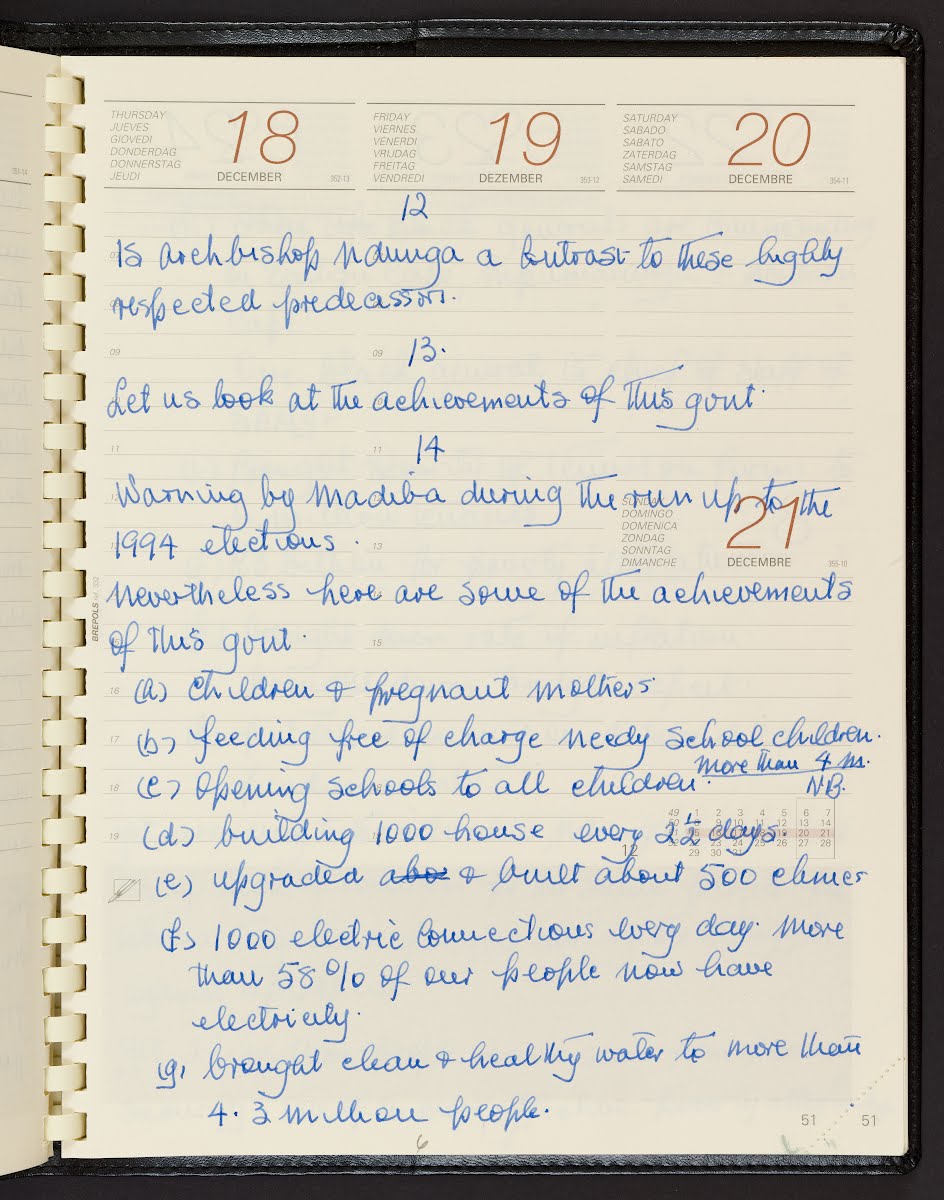 THURSDAY
JUEVES
GIOVEDI
DONDERDAG
DONNERSTAG
JEUDI
18
DECEMBER
352-13
FRIDAY
VIERNES
VENERDI
VRIJDAG
FREITAG
VENDREDI
19
DEZEMBER
353-12
SATURDAY
SABADO
SABATO
ZATERDAG
SAMSTAG
SAMEDI
20
DECEMBRE
354-11
12
Is Archbishop Ndunga a contrast to these highly
respected predecessors.
09
09
13.
Let us look at the achievements of this govt.
11
11
14
Warning by Madiba during the run up to the
1994 elections.
13
SUNDAY
DOMINGO
DOMENICA
ZONDAG
SONNTAG
DIMANCHE
21
DECEMBRE
355-10
Nevertheless here are some of the achievements
BREPOLS
of this govt.
15
16
(a) Children & pregnant mothers
17
(b) feeding free of charge needy school children.
more than 4 m.
18
(c) Opening schools to all children.
N.B.
19
(d) building 1000 house every 2½ days.
(e) upgraded abo & built about 500 clinics
(f) 1000 electric connections every day. More
than 58% of our people now have
electricity.
(g) brought clean & healthy water to more than
4.3 million people.
51
51
6